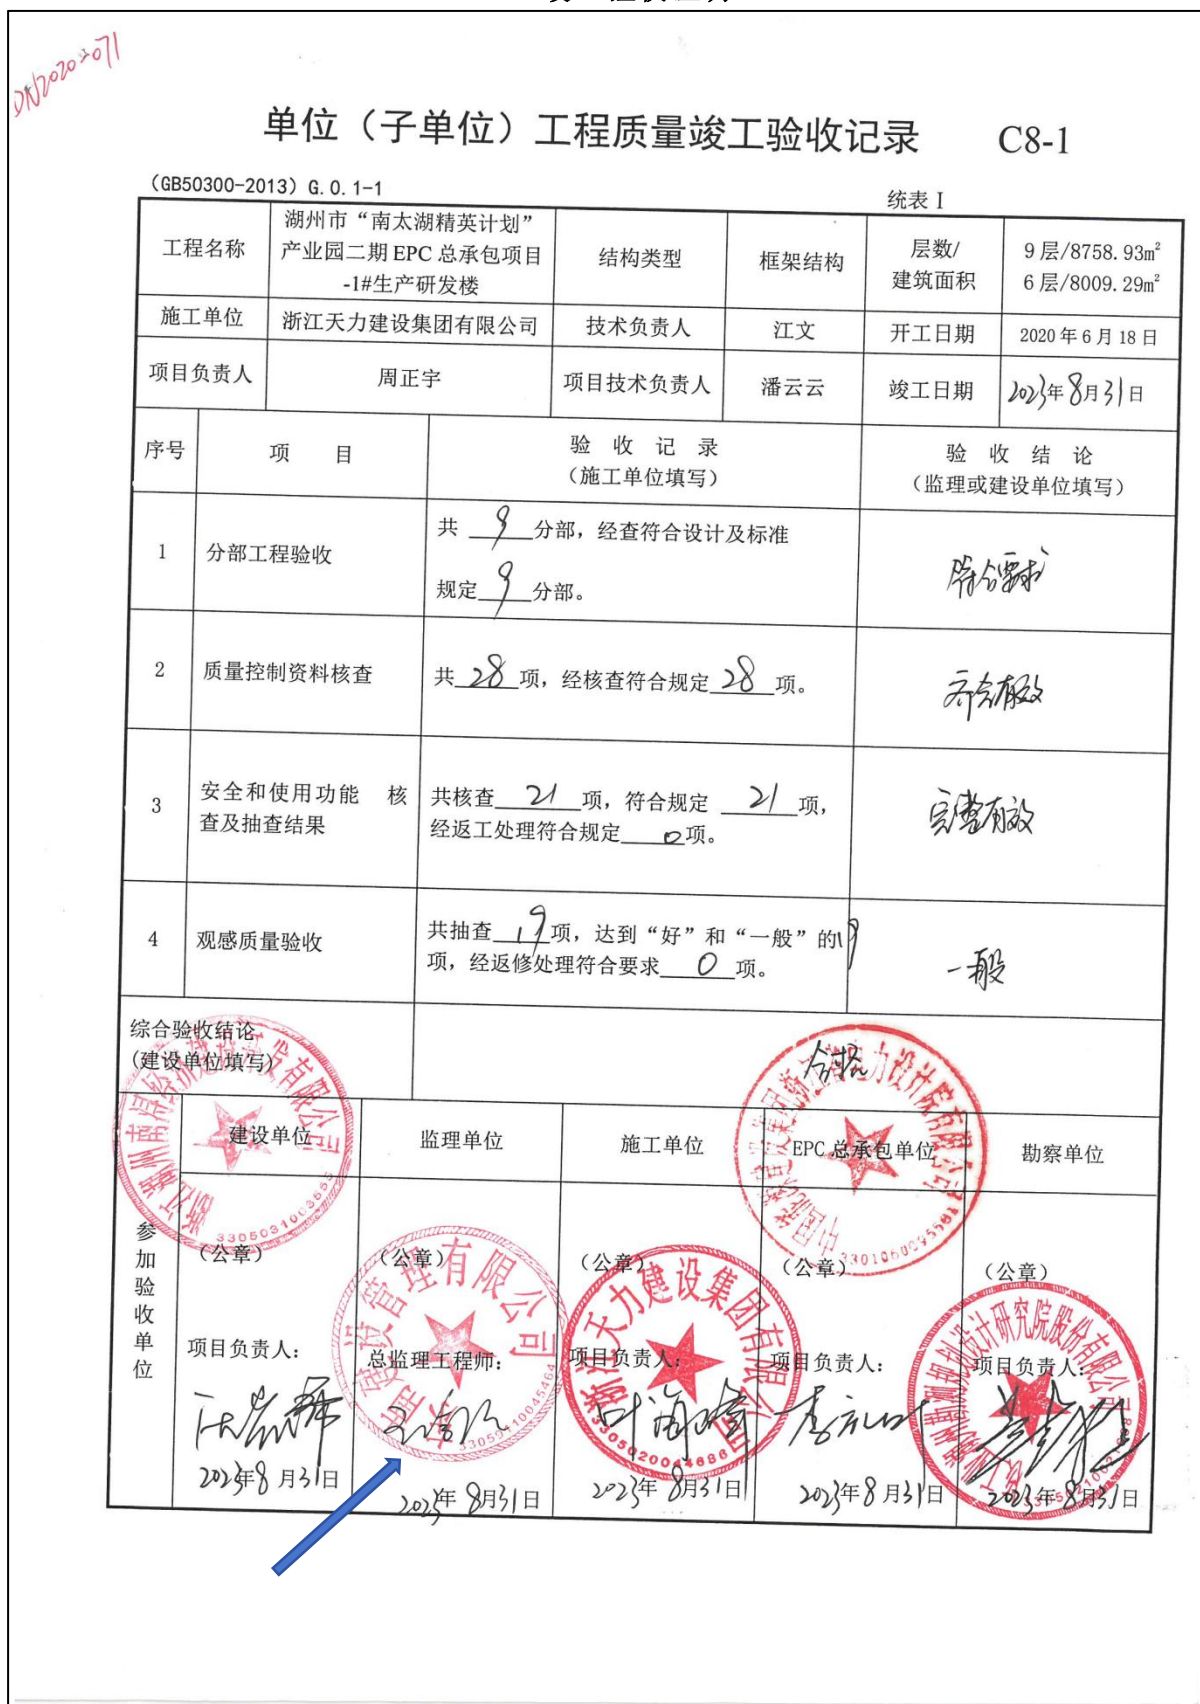 DN2020-071
单位（子单位）工程质量竣工验收记录 C8-1
（GB50300-2013）G.0.1-1
统表 I
工程名称
湖州市“南太湖精英计划”
产业园二期 EPC 总承包项目
-1#生产研发楼
结构类型
框架结构
层数/
建筑面积
9 层/8758.93m²
6 层/8009.29m²
施工单位
浙江天力建设集团有限公司
技术负责人
江文
开工日期
2020 年 6 月 18 日
项目负责人
周正宇
项目技术负责人
潘云云
竣工日期
2023年 8月31日
序号
项 目
验 收 记 录
（施工单位填写）
验 收 结 论
（监理或建设单位填写）
1
分部工程验收
共 9 分部，经查符合设计及标准
规定 9 分部。
符合要求
2
质量控制资料核查
共 28 项，经核查符合规定 28 项。
齐全有效
3
安全和使用功能 核
查及抽查结果
共核查 21 项，符合规定 21 项，
经返工处理符合规定 0 项。
完整有效
4
观感质量验收
共抽查 19 项，达到“好”和“一般”的19
项，经返修处理符合要求 0 项。
一般
综合验收结论
(建设单位填写)
合格
参加验收单位
建设单位
监理单位
施工单位
EPC 总承包单位
勘察单位
（公章）
（公章）
（公章）
（公章）
（公章）
项目负责人：
总监理工程师：
项目负责人：
项目负责人：
项目负责人：
2023年8 月31日
2023年 8月31日
2023年 8月31日
2023年8 月31日
2023年 8月31日
建设管理有限公司
浙江天力建设集团有限公司
3305031003655